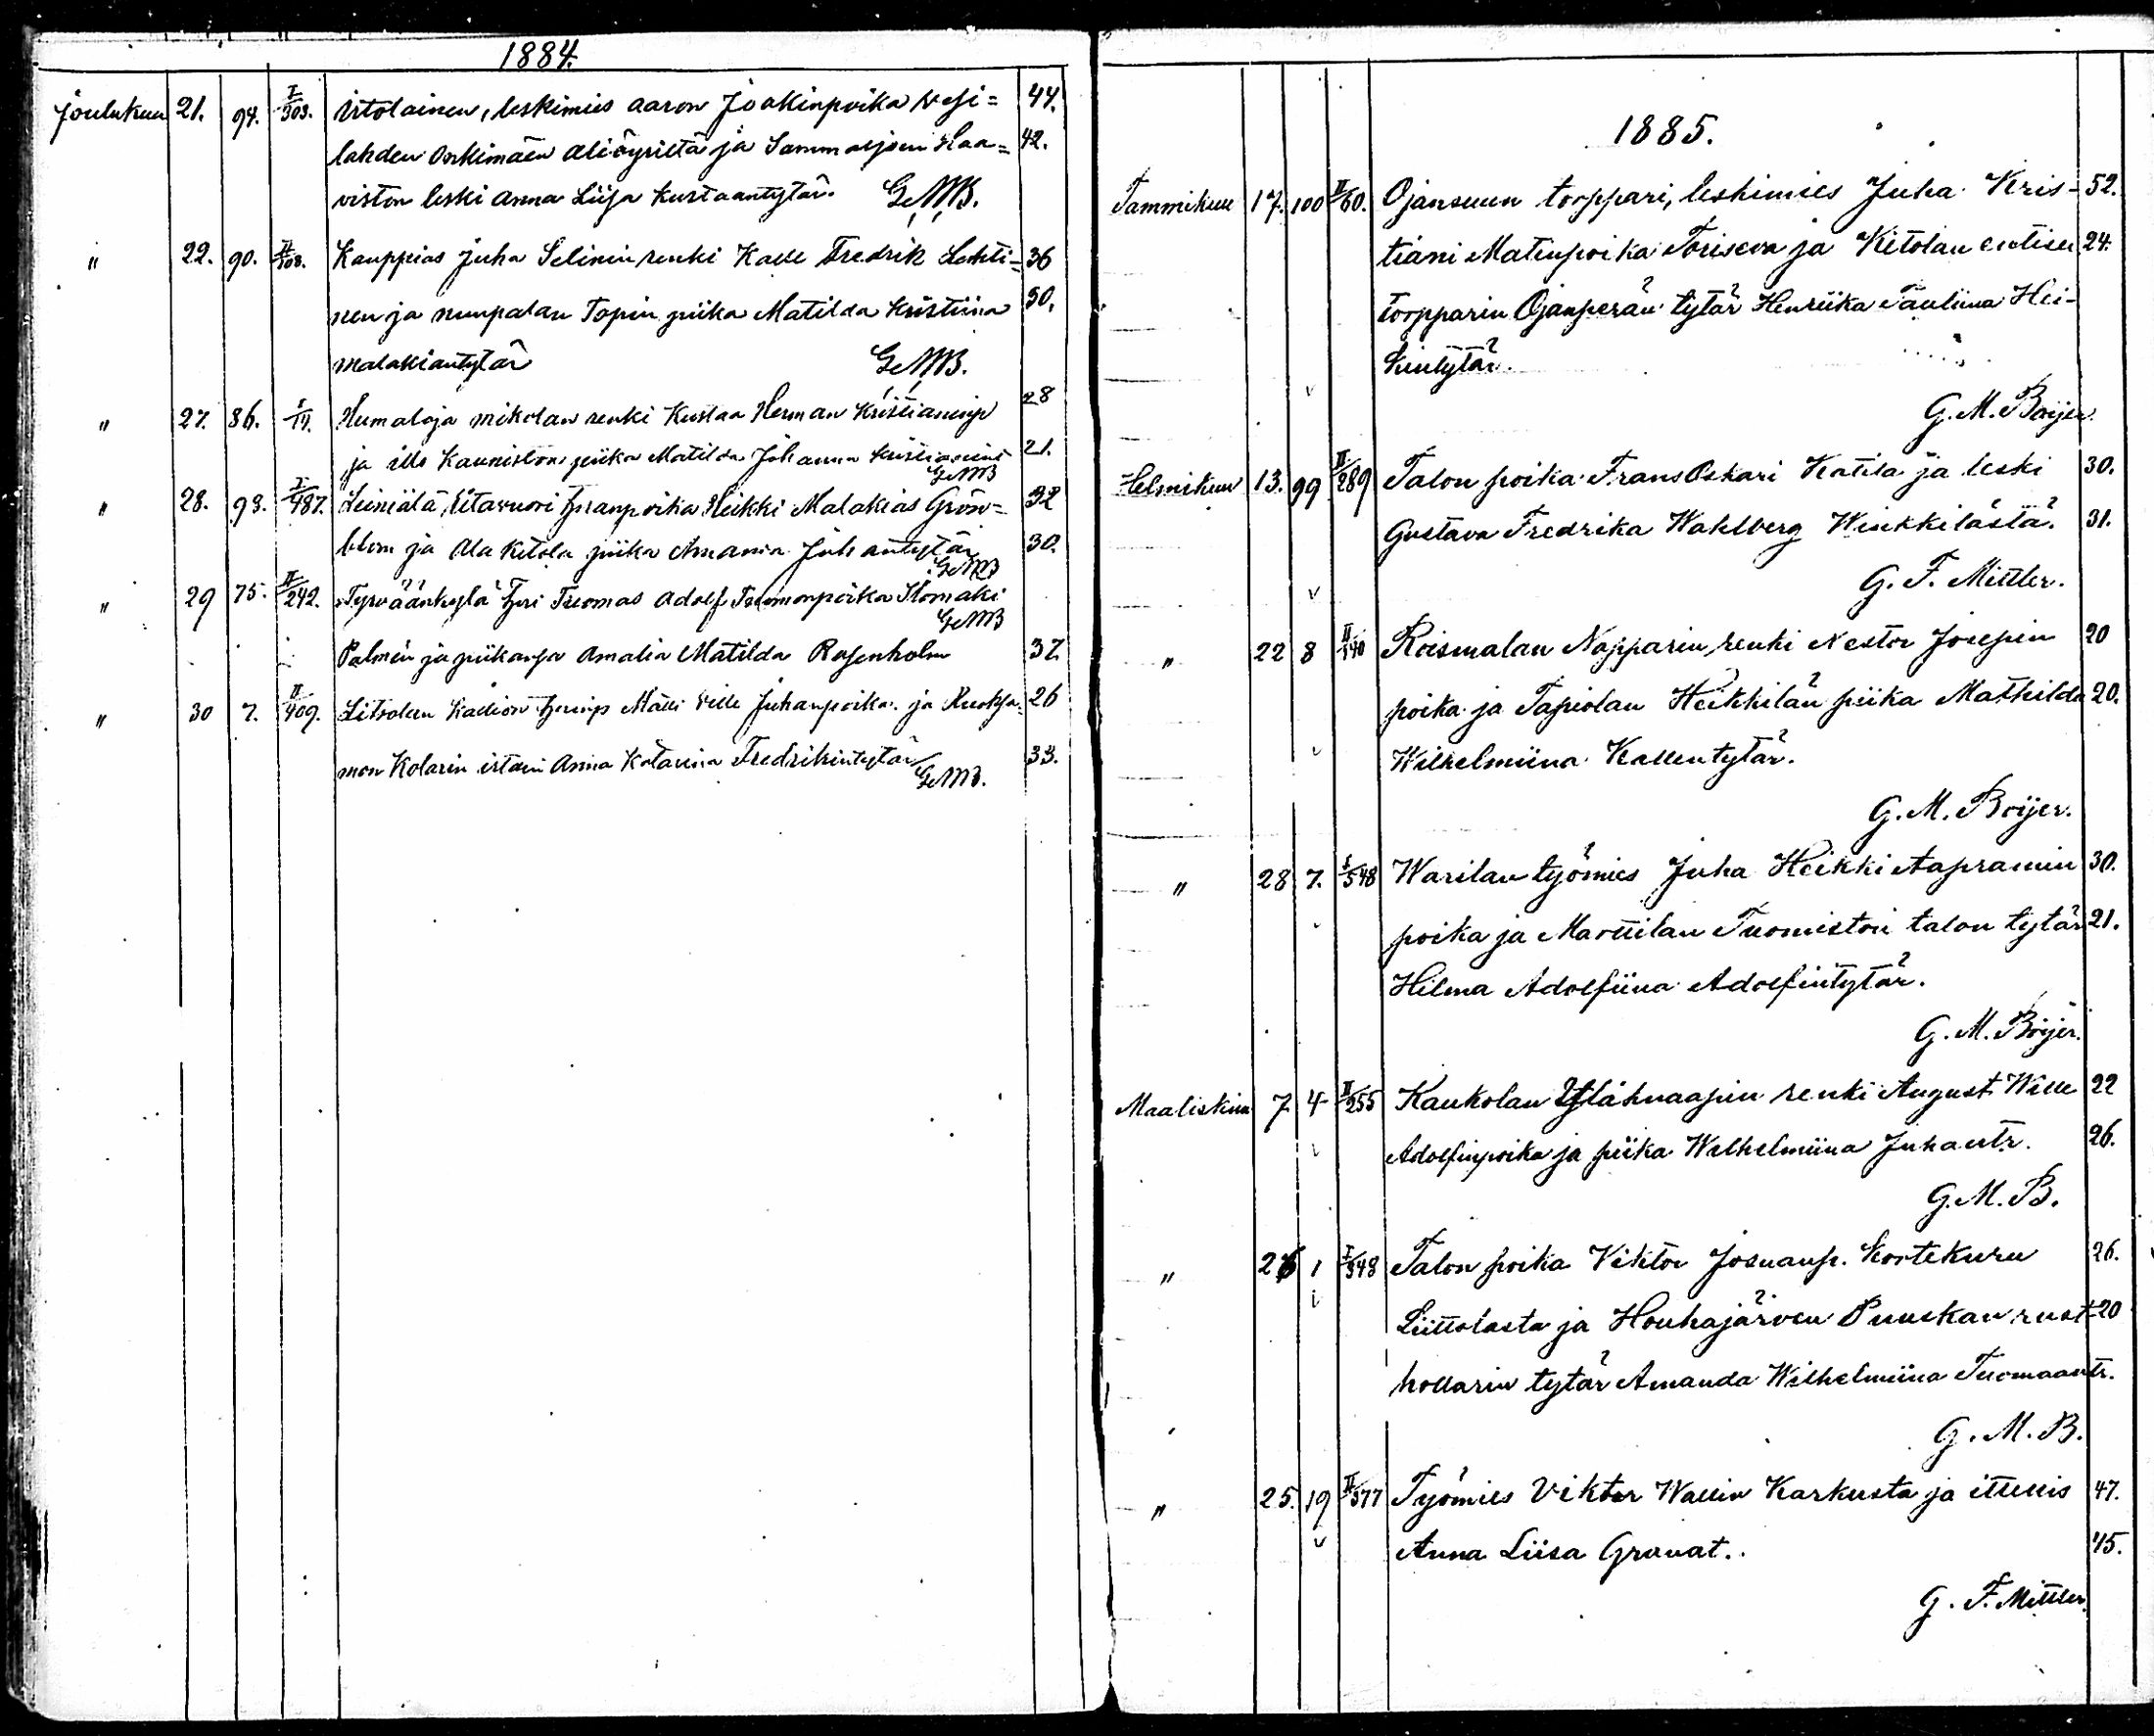 1884.
Joulukuu 21. 94. I/303. itolainen, leskimies Aaron Joakinpoika Vesi= 44.
lahden Onkimäen Aliöyriltä ja Sammaljoen Haa= 42.
viston leski Anna Liisa Kustaantytär. G.M.B.
" 22. 90. II/308. Kauppias Juha Selinin renki Kalle Fredrik Lehti= 36
nen ja Topin piika Matilda Kristiina 30.
Malakiantytär G.M.B.
" 27. 86. Humaloja Mikolan renki Kustaa Herman Kristianinp 28
ja Kauniston piika Matilda Johanna 21.
G.M.B
" 28. 93. I/487. Leiniälä, Heikki Malakias Grön= 32
blom ja Ala Kitola piika Amanda Juhantytär 30.
G.M.B
" 29 75. II/242. Tyrväänkylä Tuomas Adolf Tuomonpoika
G.M.B
Palmén ja piikansa Amalia Matilda Rosenholm 37.
" 30 7. II/409. Liitsolan Kallion Mälli Ville Juhanpoika ja 26
mon Kolarin Anna Katariina Fredrikintytär 33.
G.M.B.
1885.
Tammikuu 17. 100 II/60. Ojansuun torppari, leskimies Juha Kris- 52.
tiani Matinpoika Toriseva ja Kitolan entisen 24.
torpparin Ojanperän tytär Henriika Pauliina Hei-
kintytär.
G. M. Boijer.
Helmikuu 13. 99 II/289 Talon poika Frans Oskari Katila ja leski 30.
Gustava Fredrika Wahlberg Winkkilästä. 31.
G. F. Mittler.
" 22 8 II/140 Roismalan Napparin renki Nestor Josepin 20
poika ja Tapiolan Heikkilän piika Mathilda 20.
Wilhelmiina Kallentytär.
G. M. Boijer.
" 28 7. I/548 Warilan työmies Juha Heikki Aapramin 30.
poika ja Marttilan Tuomiston talon tytär 21.
Hilma Adolfiina Adolfintytär.
G. M. Boijer.
Maaliskuu 7 4 II/255 Kaukolan Ylähnaapin renki August Wille 22
Adolfinpoika ja piika Wilhelmiina Juhantr. 26.
G. M. B.
" 26 1 I/348 Talon poika Viktor Josuanp. Kortekuru 26.
Liittolasta ja Houhajärven Puuskan rust- 20
hollarin tytär Amanda Wilhelmiina Tuomaantr.
G. M. B.
" 25. 19 II/377 Työmies Viktor Wallin Karkusta ja itsellis 47.
Anna Liisa Granat. 45.
G. F. Mittler.